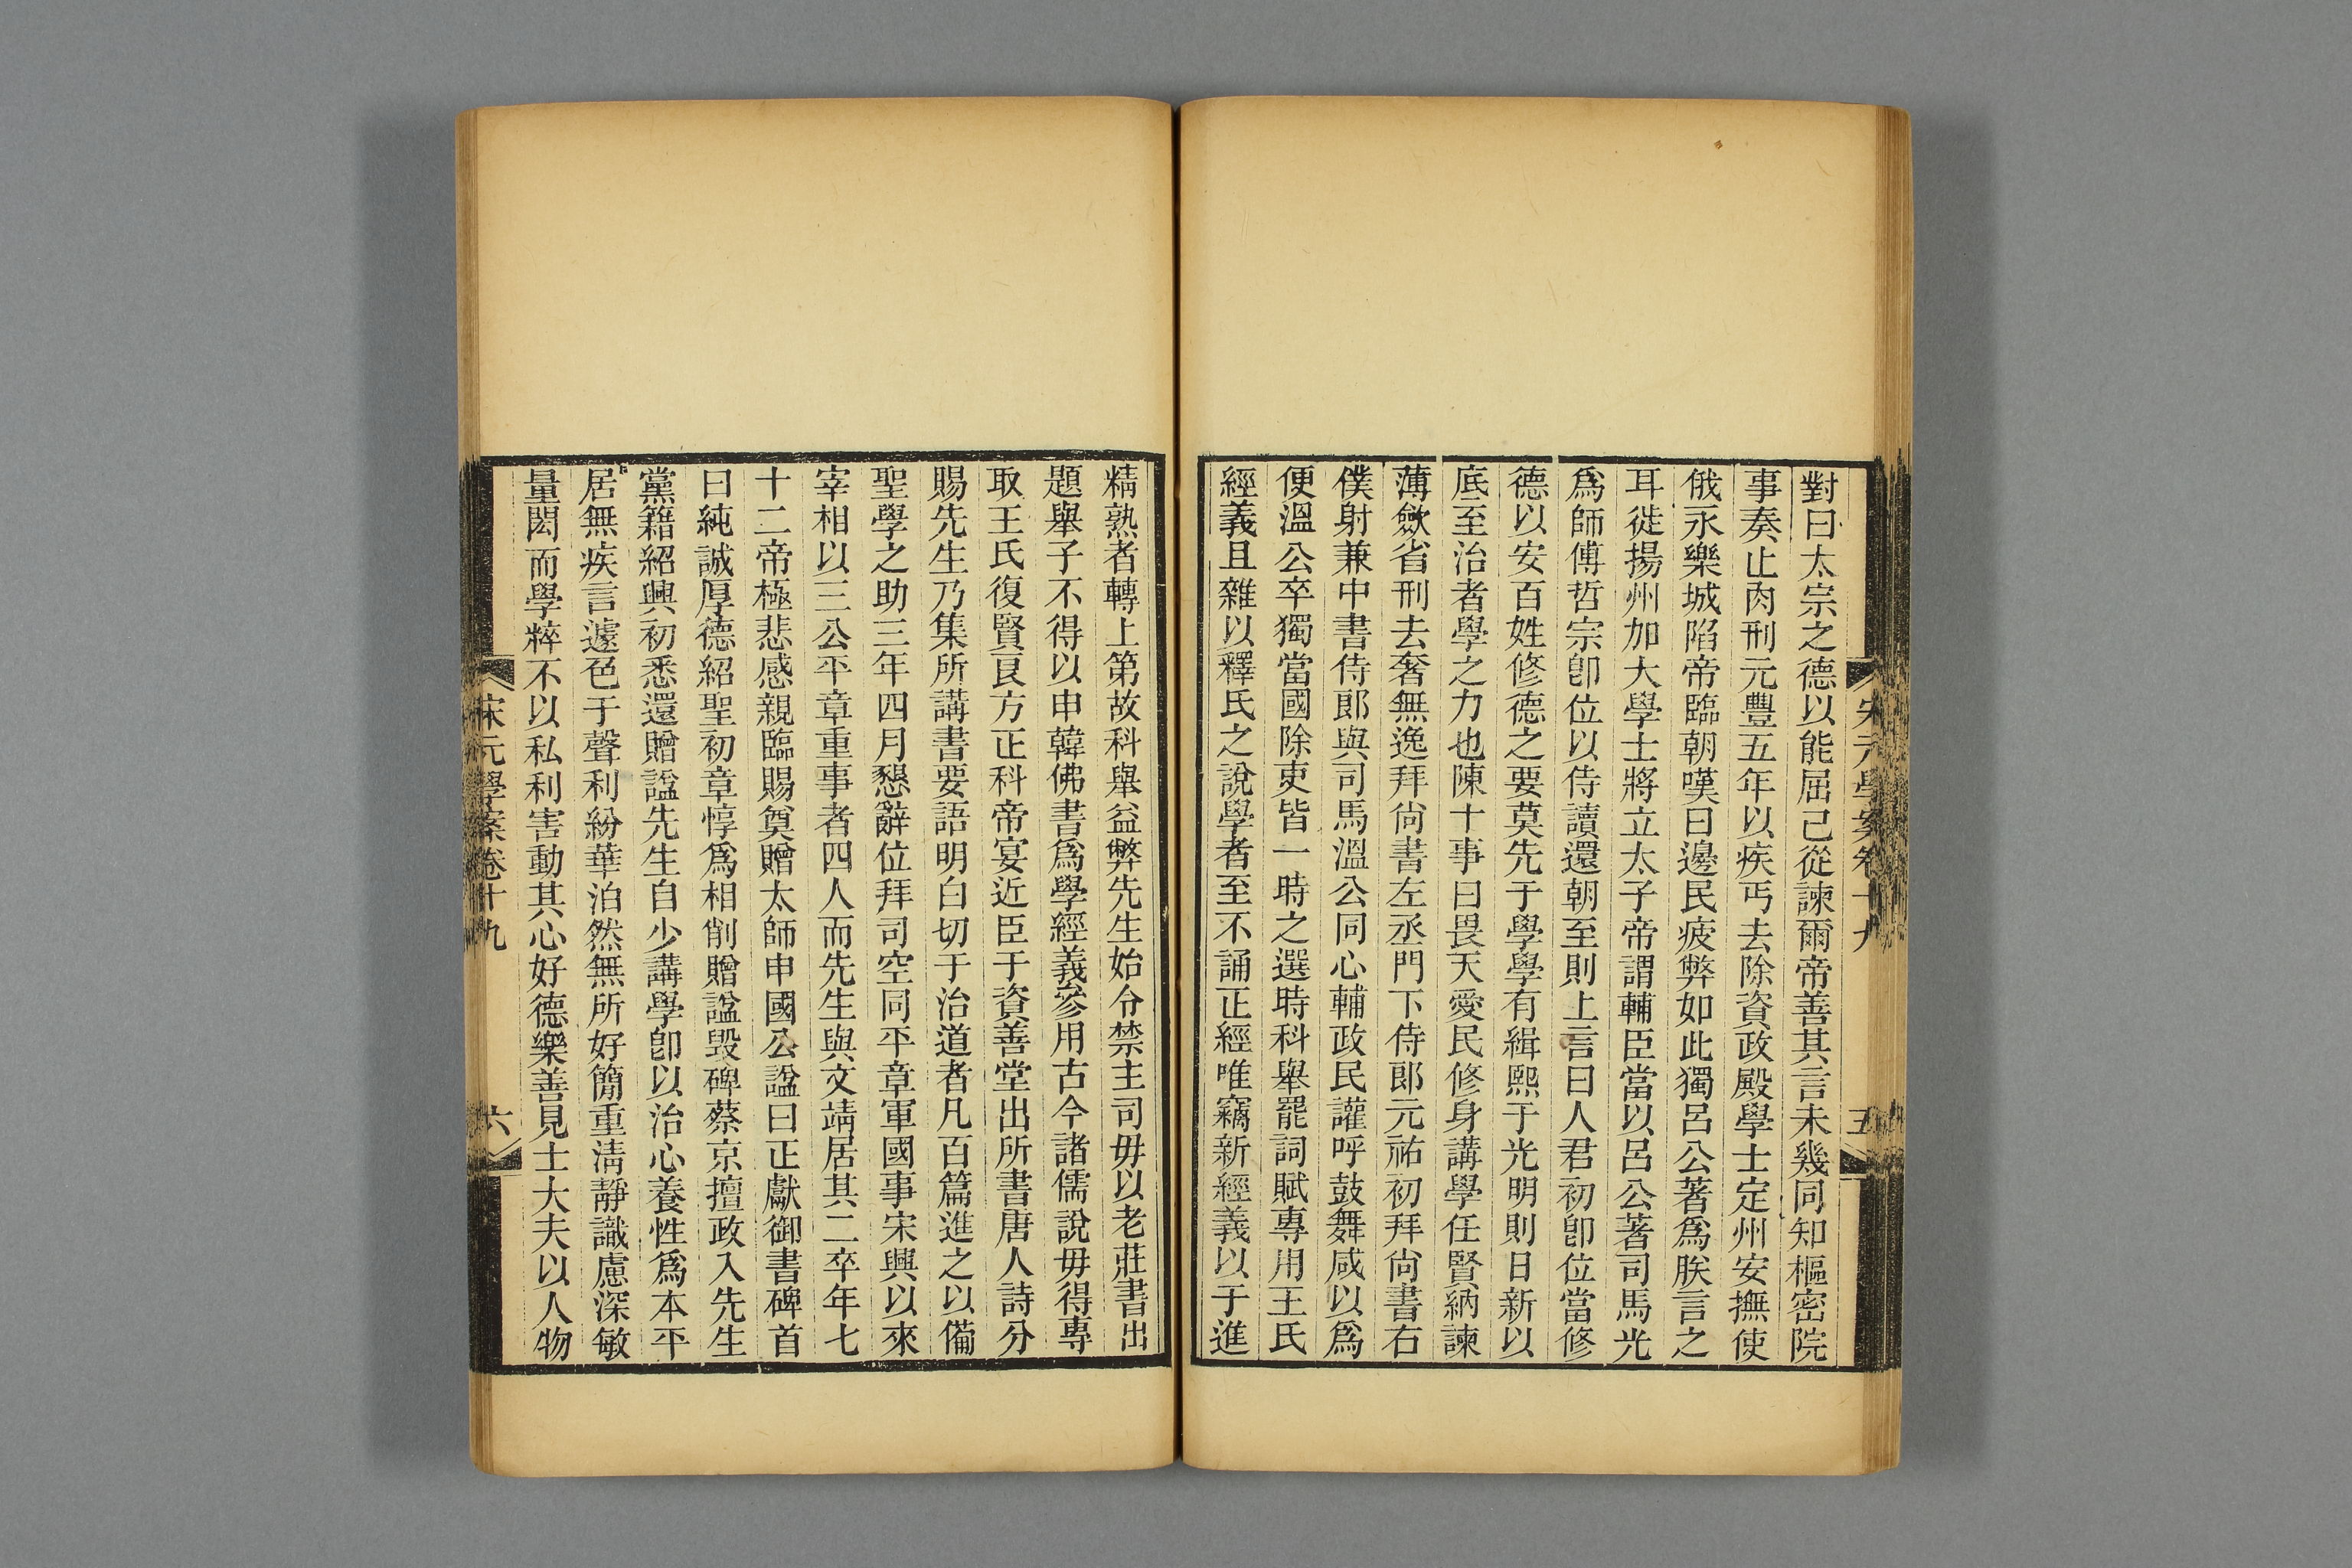 宋元學案卷十九
五
對曰太宗之德以能屈己從諫爾帝善其言未幾同知樞密院
事奏止肉刑元豐五年以疾丐去除資政殿學士定州安撫使
俄永樂城陷帝臨朝嘆曰邊民疲弊如此獨呂公著爲朕言之
耳徙揚州加大學士將立太子帝謂輔臣當以呂公著司馬光
爲師傅哲宗卽位以侍讀還朝至則上言曰人君初卽位當修
德以安百姓修德之要莫先于學學有緝熙于光明則日新以
底至治者學之力也陳十事曰畏天愛民修身講學任賢納諫
薄斂省刑去奢無逸拜尙書左丞門下侍郎元祐初拜尙書右
僕射兼中書侍郎與司馬溫公同心輔政民讙呼鼓舞咸以爲
便溫公卒獨當國除吏皆一時之選時科舉罷詞賦專用王氏
經義且雜以釋氏之說學者至不誦正經唯竊新經義以于進
精熟者轉上第故科舉益弊先生始令禁主司毋以老莊書出
題舉子不得以申韓佛書爲學經義參用古今諸儒說毋得專
取王氏復賢良方正科帝宴近臣于資善堂出所書唐人詩分
賜先生乃集所講書要語明白切于治道者凡百篇進之以備
聖學之助三年四月懇辭位拜司空同平章軍國事宋興以來
宰相以三公平章重事者四人而先生與文靖居其二卒年七
十二帝極悲感親臨賜奠贈太師申國公諡曰正獻御書碑首
曰純誠厚德紹聖初章惇爲相削贈諡毀碑蔡京擅政入先生
黨籍紹興初悉還贈諡先生自少講學卽以治心養性爲本平
居無疾言遽色于聲利紛華泊然無所好簡重淸靜識慮深敏
量閎而學粹不以私利害動其心好德樂善見士大夫以人物
宋元學案卷十九
六